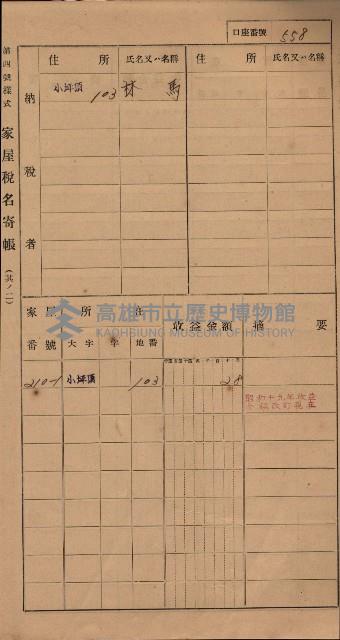 口座番號 558
第四號樣式
家屋稅名寄帳
(其ノ二)
納稅者
住所 氏名又ハ名稱 住所 氏名又ハ名稱
小坪頂 103 林馬
家屋番號 家屋所在 收益金額 摘要
大字 字 地番
210-1 小坪頂 103 28
昭和十九年收益
金額改訂現在
高雄市立歷史博物館
KAOHSIUNG MUSEUM OF HISTORY